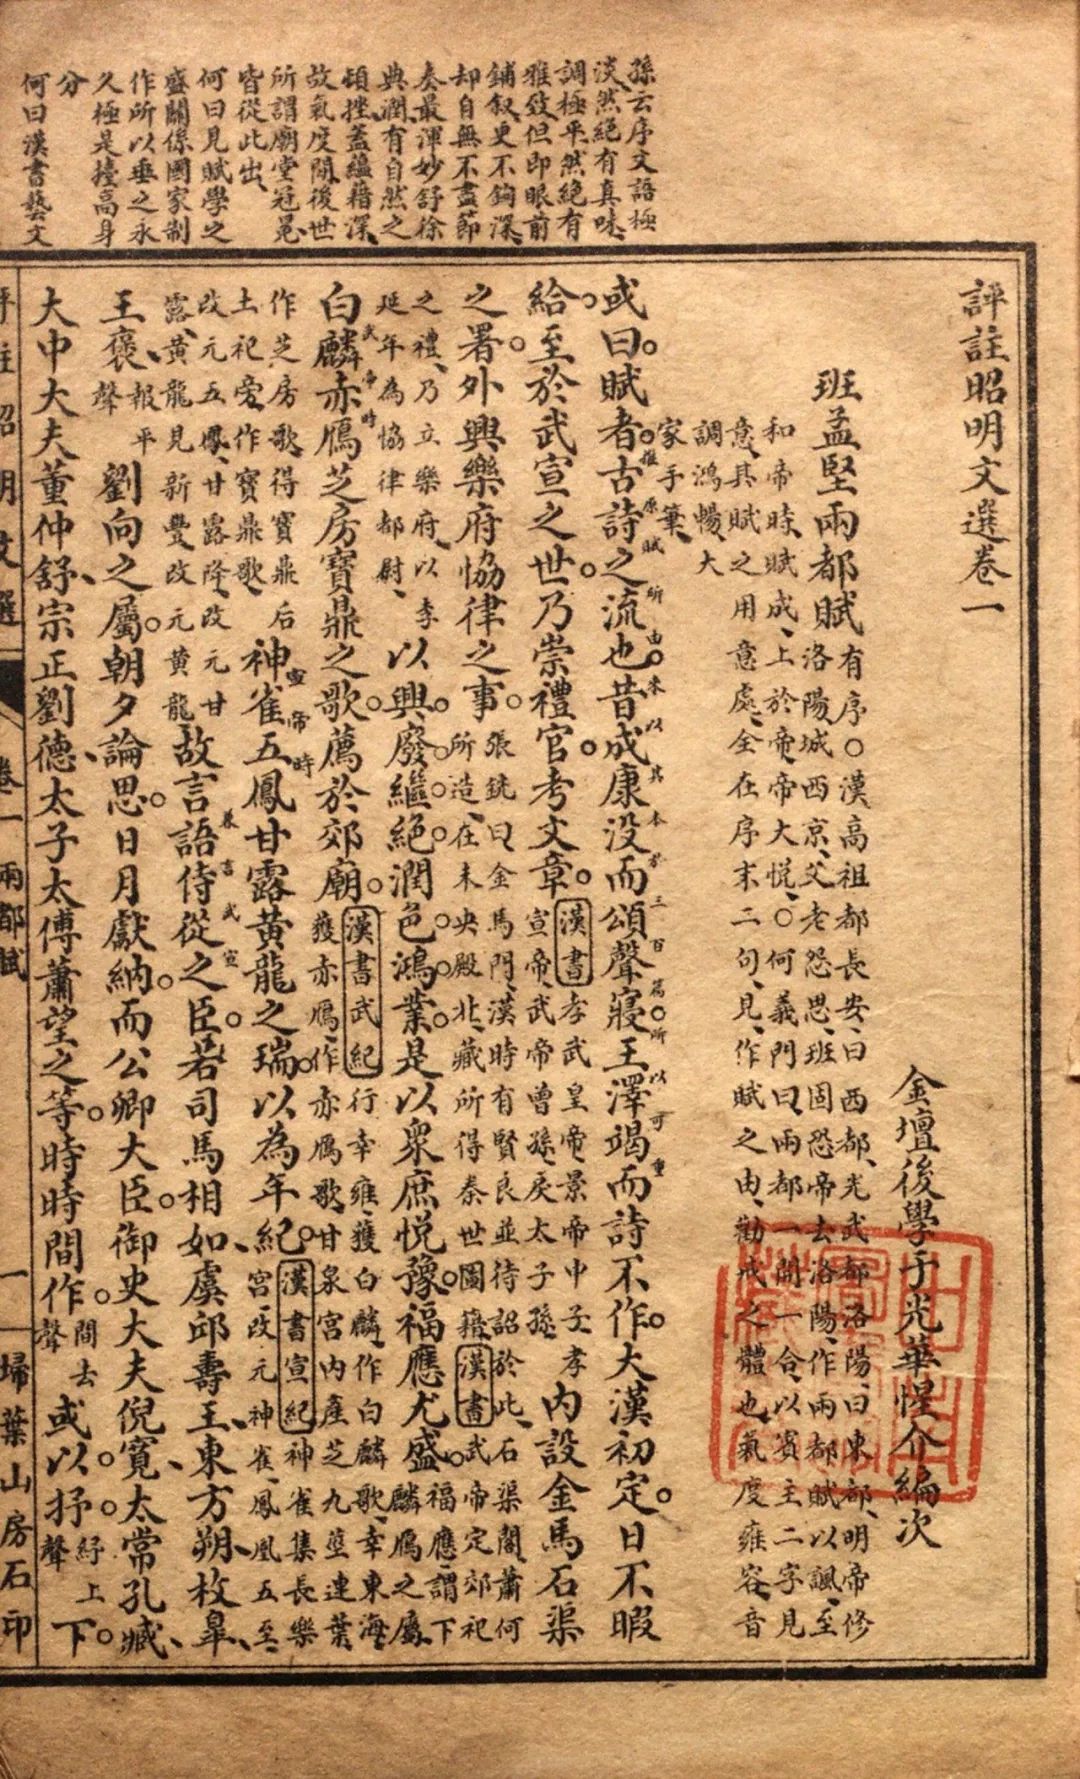 孫云序文語極
淡然絕有真味
調極平然絕有
雅致但即眼前
鋪叙更不鉤深
却自無不盡節
奏最渾妙舒徐
典潤有自然之
頓挫蓋蘊藉深
故氣度閒後世
所謂廟堂冠冕
皆從此出
何曰見賦學之
盛關係國家制
作所以垂之永
久極是擡高身
分
何曰漢書藝文
評註昭明文選卷一
金壇後學于光華惺介編次
班孟堅兩都賦
有序○漢高祖都長安曰西都光武都洛陽曰東都明帝修
洛陽城西京父老怨思班固恐帝去洛陽作兩都賦以諷至
和帝時賦成上於帝帝大悅○何義門曰兩都一開一合以賓主二字見
意其賦之用意處全在序末二句見作賦之由勸戒之體也氣度雍容音
調鴻暢大
家手筆
或曰賦者古詩之流也昔成康沒而頌聲寢王澤竭而詩不作大漢初定日不暇
推原賦所由來以其本于三百篇所以可重
給至於武宣之世乃崇禮官考文章
漢書孝武皇帝景帝中子孝
宣帝武帝曾孫戾太子孫
內設金馬石渠
之署外興樂府協律之事
張銑曰金馬門漢時有賢良並待詔於此石渠閣蕭何
所造在未央殿北藏所得秦世圖籍漢書武帝定郊祀
之禮乃立樂府以李
延年為協律都尉
以興廢繼絕潤色鴻業是以衆庶悅豫福應尤盛
福應謂下
麟鴈之屬
白麟赤鴈芝房寶鼎之歌薦於郊廟
武帝時
漢書武紀行幸雍獲白麟作白麟歌幸東海
獲赤鴈作赤鴈歌甘泉宮內產芝九莖連葉
作芝房歌得寶鼎后
土祀旁作寶鼎歌
神雀五鳳甘露黃龍之瑞以為年紀
宣帝時
漢書宣紀神雀集長樂
宮改元神雀鳳凰五至
改元五鳳甘露降改元甘
露黃龍見新豐改元黃龍
故言語侍從之臣若司馬相如虞邱壽王東方朔枚皋
王褒
報平
聲
劉向之屬朝夕論思日月獻納而公卿大臣御史大夫倪寬太常孔臧
大中大夫董仲舒宗正劉德太子太傅蕭望之等時時間作
間去
聲
或以抒
紓上
聲
下
評註昭明文選
卷一
兩都賦
一
掃葉山房石印